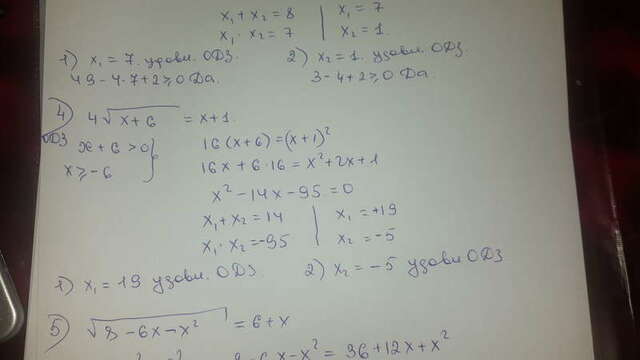 x₁ + x₂ = 8 | x₁ = 7
x₁ · x₂ = 7 | x₂ = 1.
1) x₁ = 7. удовл. ОДЗ. 2) x₂ = 1. удовл. ОДЗ.
49 - 4·7 + 2 ≥ 0 Да. 3 - 4 + 2 ≥ 0 Да.
4) 4√(x + 6) = x + 1.
ОДЗ x + 6 > 0 } 16(x + 6) = (x + 1)²
x ≥ -6 16x + 6·16 = x² + 2x + 1
x² - 14x - 95 = 0
x₁ + x₂ = 14 | x₁ = +19
x₁ · x₂ = -95 | x₂ = -5
1) x₁ = 19 удовл. ОДЗ. 2) x₂ = -5 удовл ОДЗ
5) √(8 - 6x - x²) = 6 + x
6x - x² = 36 + 12x + x²